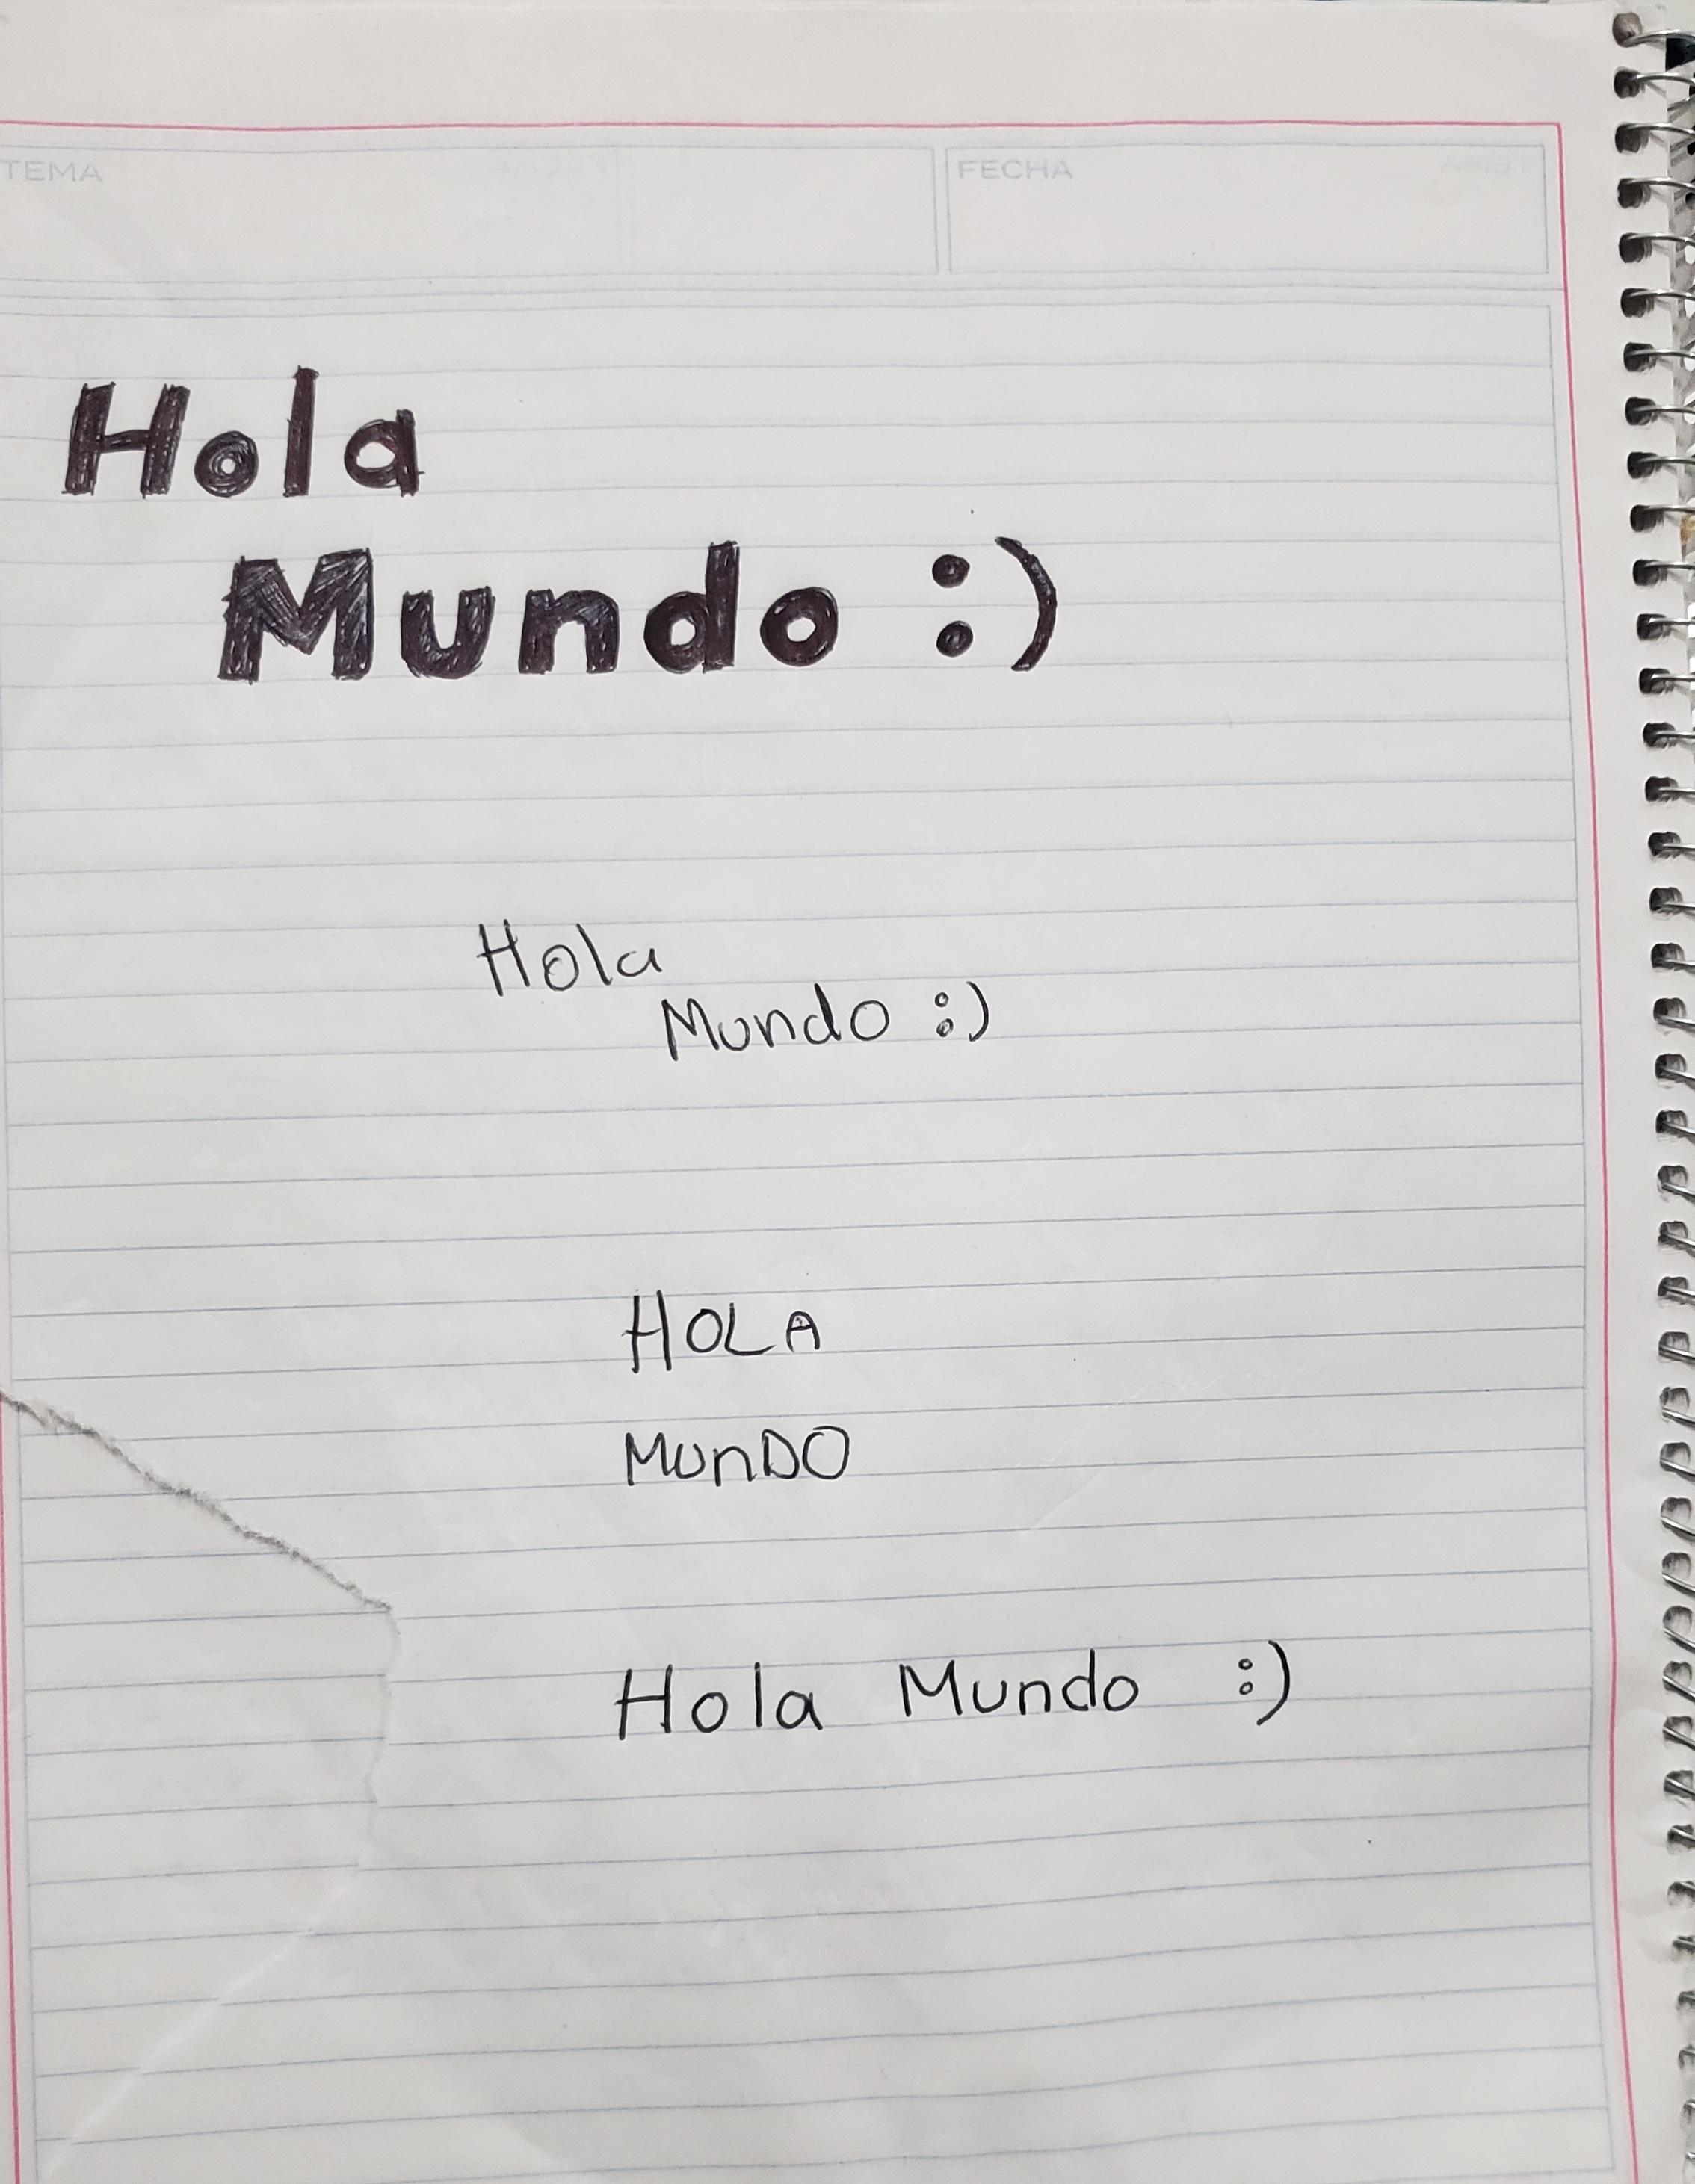 TEMA FECHA
Hola
Mundo :)
Hola
Mundo :)
HOLA
MUnDO
Hola Mundo :)